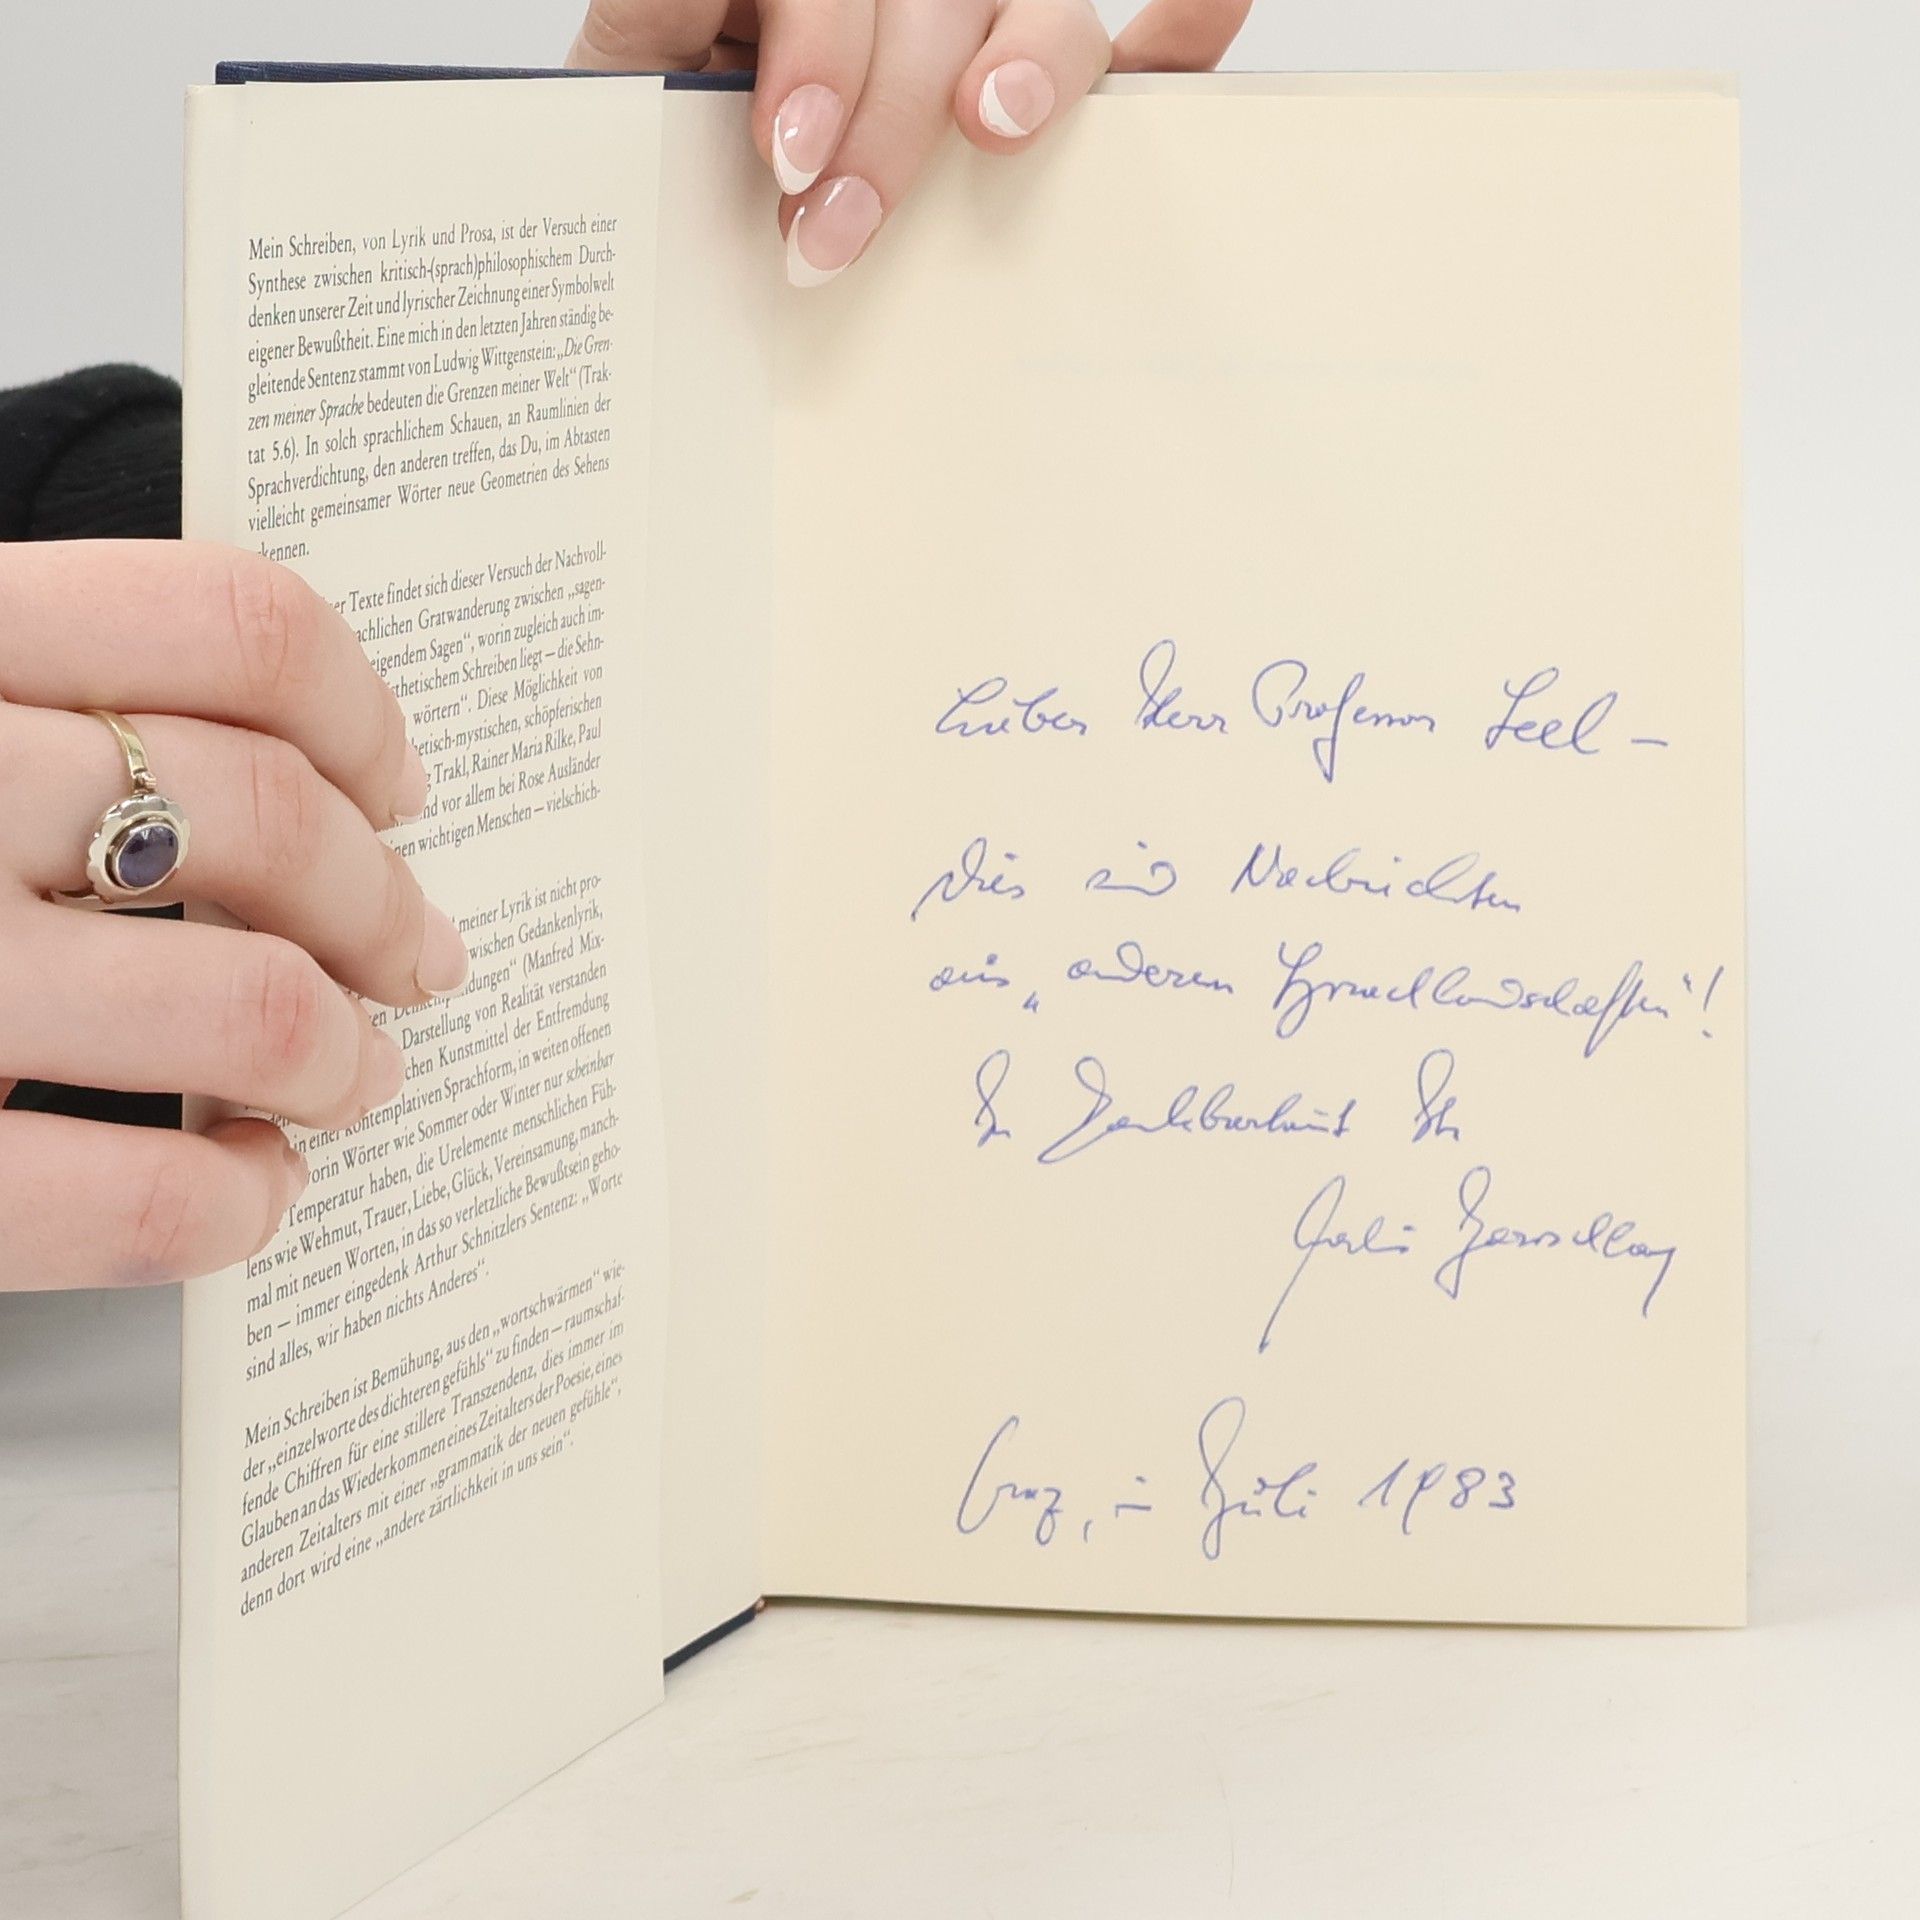 Mein Schreiben, von Lyrik und Prosa, ist der Versuch einer
Synthese zwischen kritisch-(sprach)philosophischem Durch-
denken unserer Zeit und lyrischer Zeichnung einer Symbolwelt
eigener Bewußtheit. Eine mich in den letzten Jahren ständig be-
gleitende Sentenz stammt von Ludwig Wittgenstein: „Die Gren-
zen meiner Sprache bedeuten die Grenzen meiner Welt“ (Trak-
tat 5.6). In solch sprachlichem Schauen, an Raumlinien der
Sprachverdichtung, den anderen treffen, das Du, im Abtasten
vielleicht gemeinsamer Wörter neue Geometrien des Sehens
kennen.
er Texte findet sich dieser Versuch der Nachvoll-
achlichen Gratwanderung zwischen „sagen-
eigendem Sagen“, worin zugleich auch im-
sthetischem Schreiben liegt – die Sehn-
wörtern“. Diese Möglichkeit von
etisch-mystischen, schöpferischen
g Trakl, Rainer Maria Rilke, Paul
nd vor allem bei Rose Ausländer
nen wichtigen Menschen – vielschich-
meiner Lyrik ist nicht pro-
wischen Gedankenlyrik,
ndungen“ (Manfred Mix-
Darstellung von Realität verstanden
chen Kunstmittel der Entfremdung
in einer kontemplativen Sprachform, in weiten offenen
worin Wörter wie Sommer oder Winter nur scheinbar
Temperatur haben, die Urelemente menschlichen Füh-
lens wie Wehmut, Trauer, Liebe, Glück, Vereinsamung, manch-
mal mit neuen Worten, in das so verletzliche Bewußtsein geho-
ben – immer eingedenk Arthur Schnitzlers Sentenz: „Worte
sind alles, wir haben nichts Anderes“.
Mein Schreiben ist Bemühung, aus den „wortschwärmen“ wie-
der „einzelworte des dichteren gefühls“ zu finden – raumschaf-
fende Chiffren für eine stillere Transzendenz, dies immer im
Glauben an das Wiederkommen eines Zeitalters der Poesie, eines
anderen Zeitalters mit einer „grammatik der neuen gefühle“,
denn dort wird eine „andere zärtlichkeit in uns sein“.
Lieber Herr Professor Seel –
dies sind Nachrichten
aus „anderen Sprachlandschaften“!
In Dankbarkeit Ihr
Graz, im Juli 1983